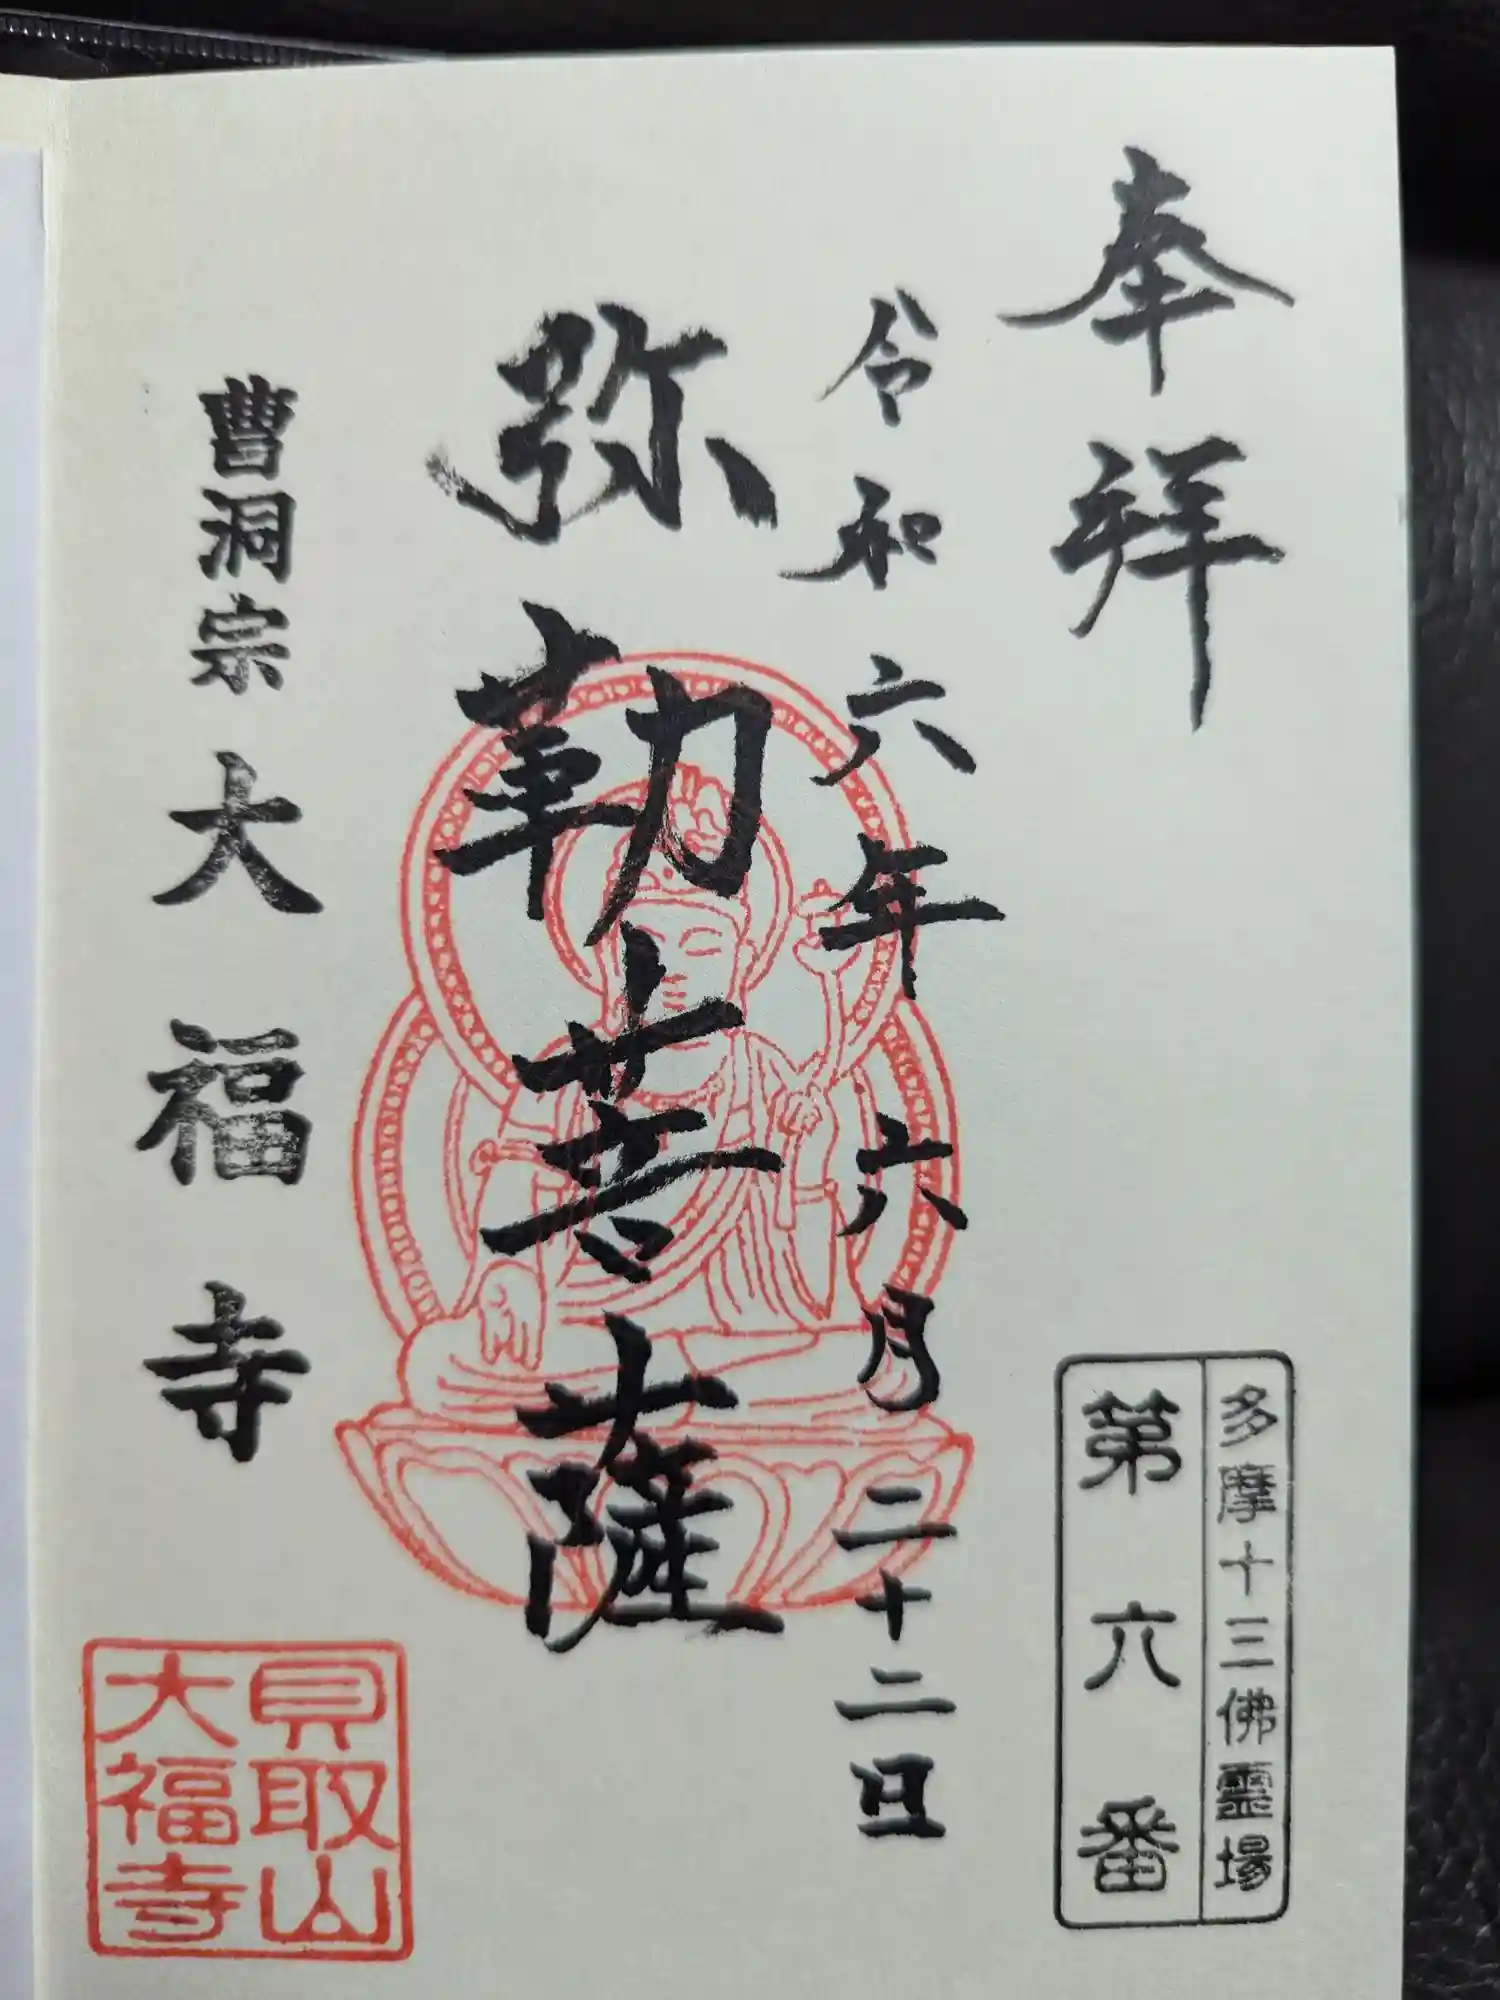 奉拜
多摩十三佛霊場
第六番
令和六年六月二十二日
弥勒菩薩
曹洞宗大福寺
貝取山
大福寺